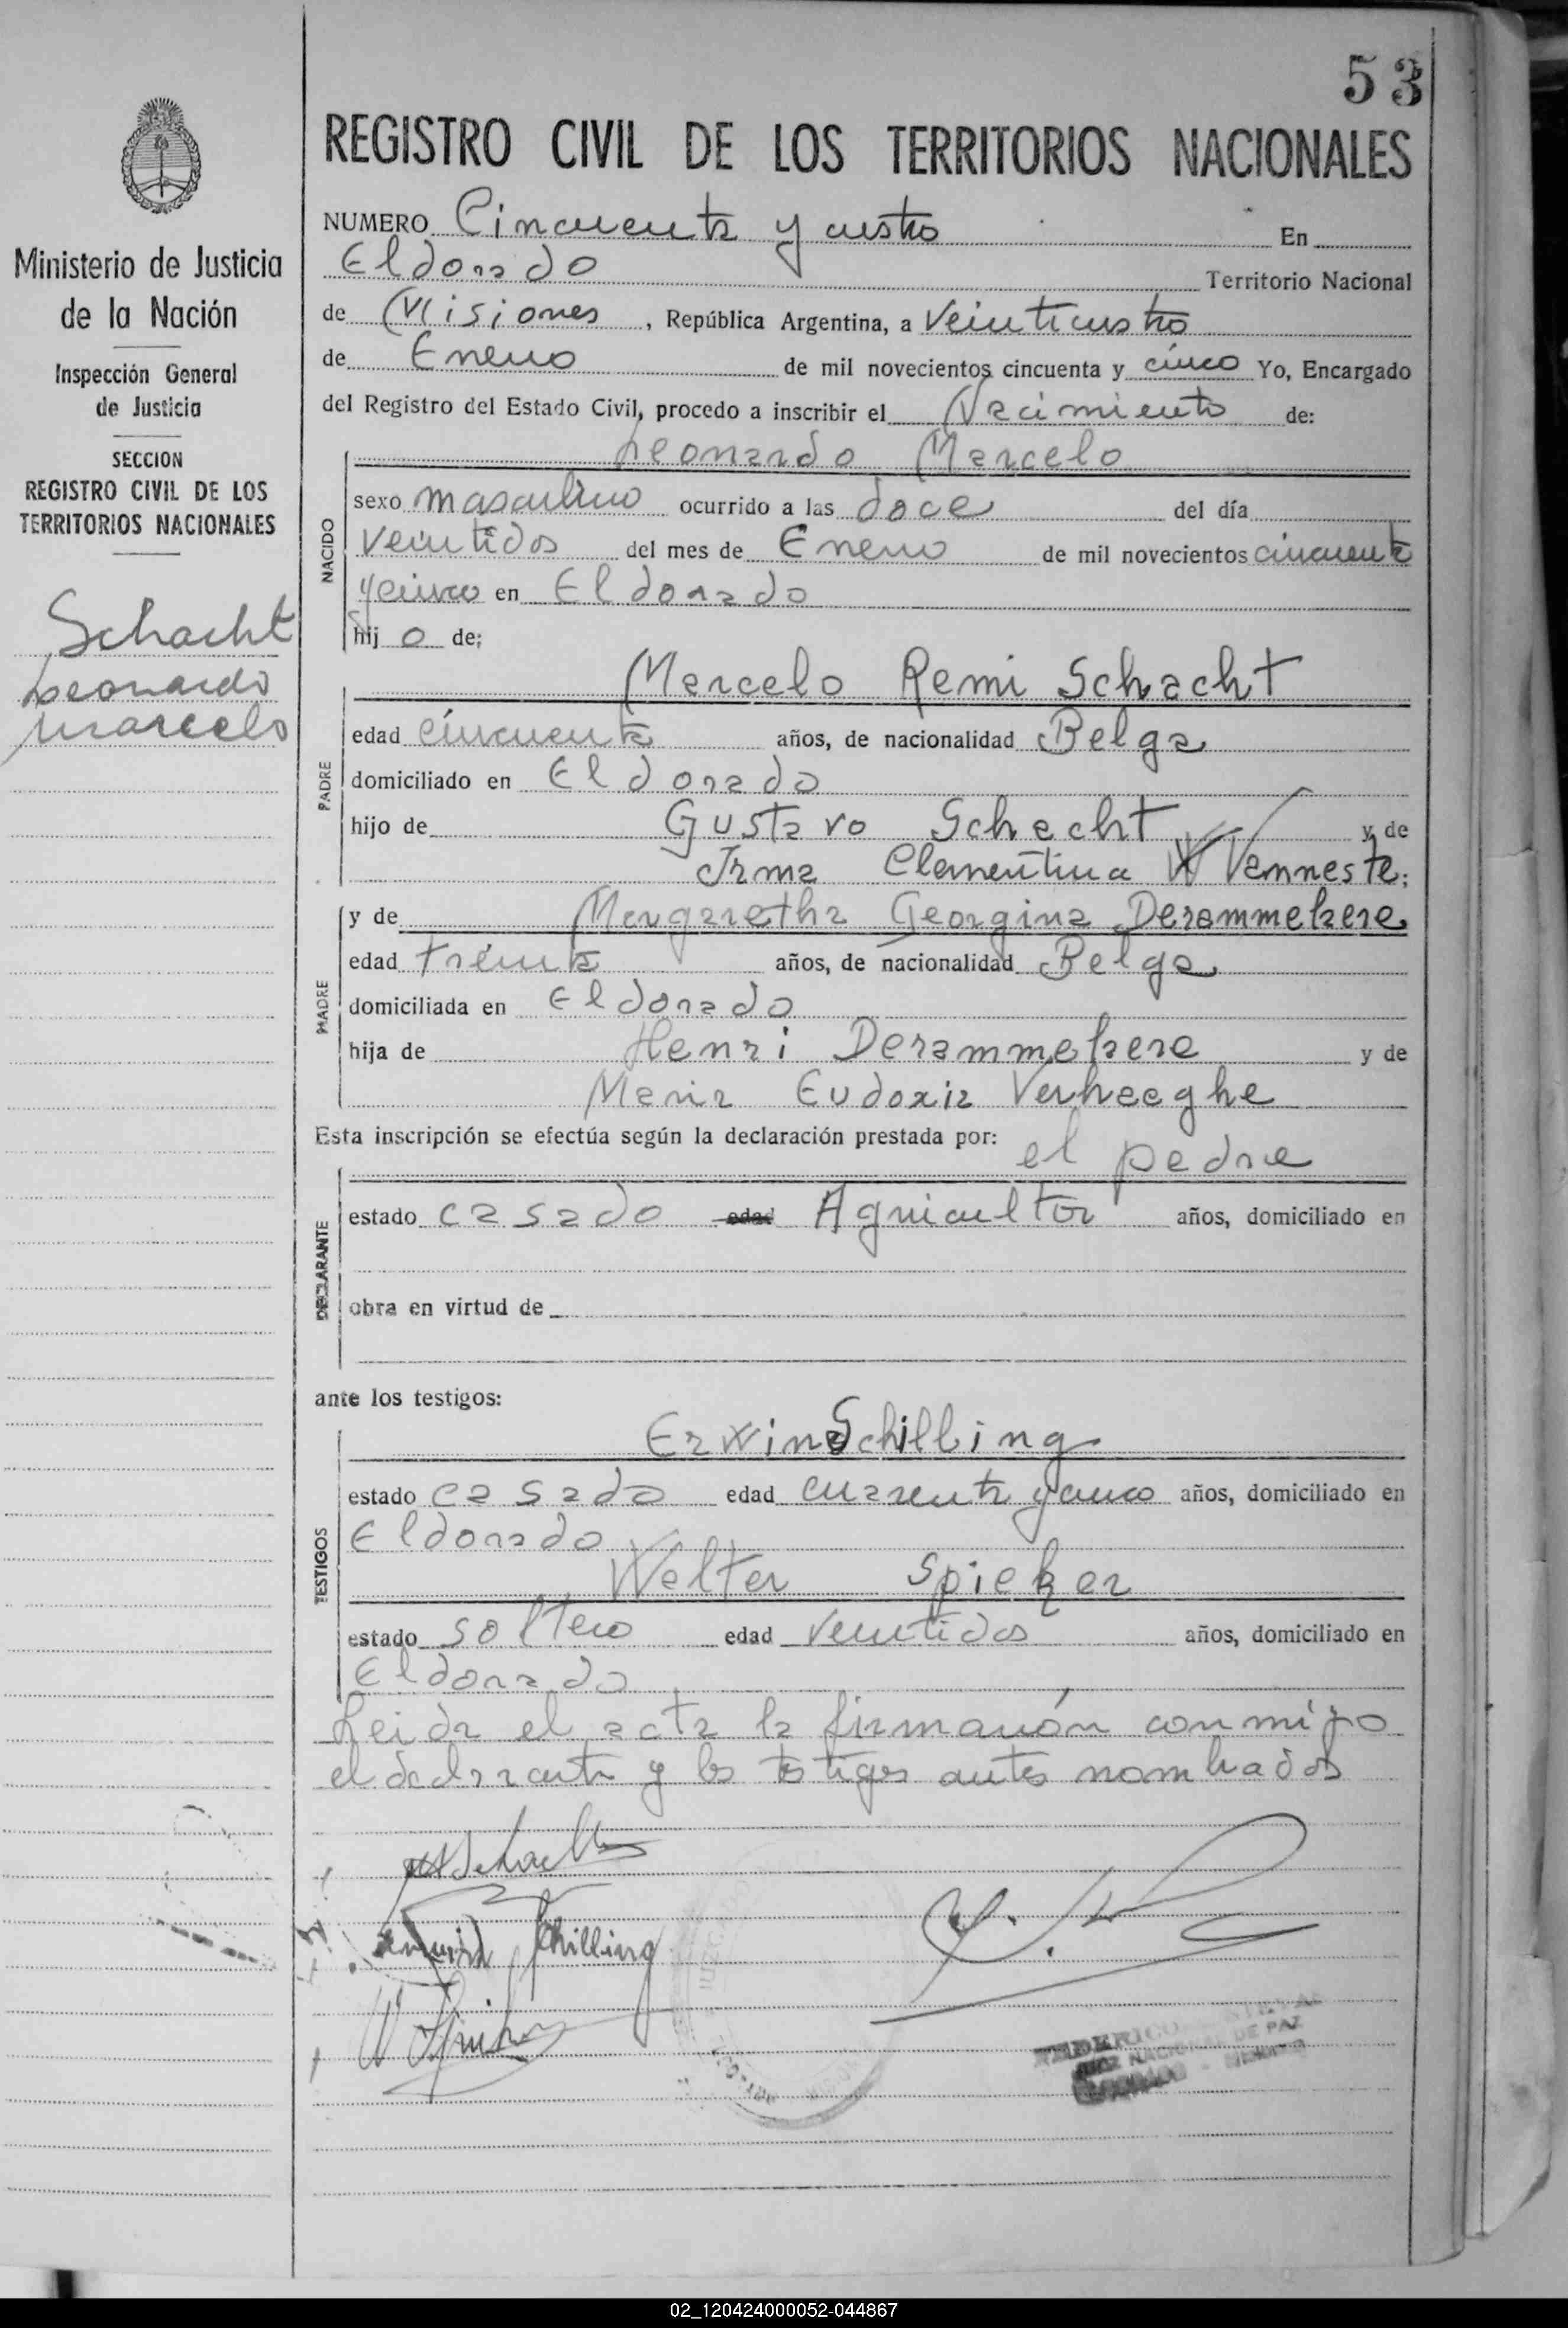 53
Ministerio de Justicia
de la Nación
Inspección General
de Justicia
SECCION
REGISTRO CIVIL DE LOS
TERRITORIOS NACIONALES
Schacht
Leonardo
Marcelo
REGISTRO CIVIL DE LOS TERRITORIOS NACIONALES
NUMERO Cincuenta y cuatro En
Eldorado Territorio Nacional
de Misiones, República Argentina, a veinticuatro
de Enero de mil novecientos cincuenta y cinco Yo, Encargado
del Registro del Estado Civil, procedo a inscribir el Nacimiento de:
NACIDO
Leonardo Marcelo
sexo masculino ocurrido a las doce del día
veintidos del mes de Enero de mil novecientos cincuenta
y cinco en Eldorado
hijo de;
PADRE
Marcelo Remi Schacht
edad cincuenta años, de nacionalidad Belga
domiciliado en Eldorado
hijo de Gustavo Schacht y de
Irma Clementina Vanneste;
MADRE
y de Margaretha Georgina Derammelaere
edad treinta años, de nacionalidad Belga
domiciliada en Eldorado
hija de Henri Derammelaere y de
Maria Eudoxia Verhaeghe
Esta inscripción se efectúa según la declaración prestada por:
el padre
DECLARANTE
estado casado edad Agricultor años, domiciliado en
obra en virtud de
ante los testigos:
TESTIGOS
Erwin Schilling
estado casado edad cuarenta y cinco años, domiciliado en
Eldorado
Walter Spieker
estado soltero edad veintidos años, domiciliado en
Eldorado
Leida el acta la firmarón conmigo
el declarante y los testigos antes nombrados
Schilling
FEDERICO
JUEZ NACIONAL DE PAZ
02_120424000052-044867